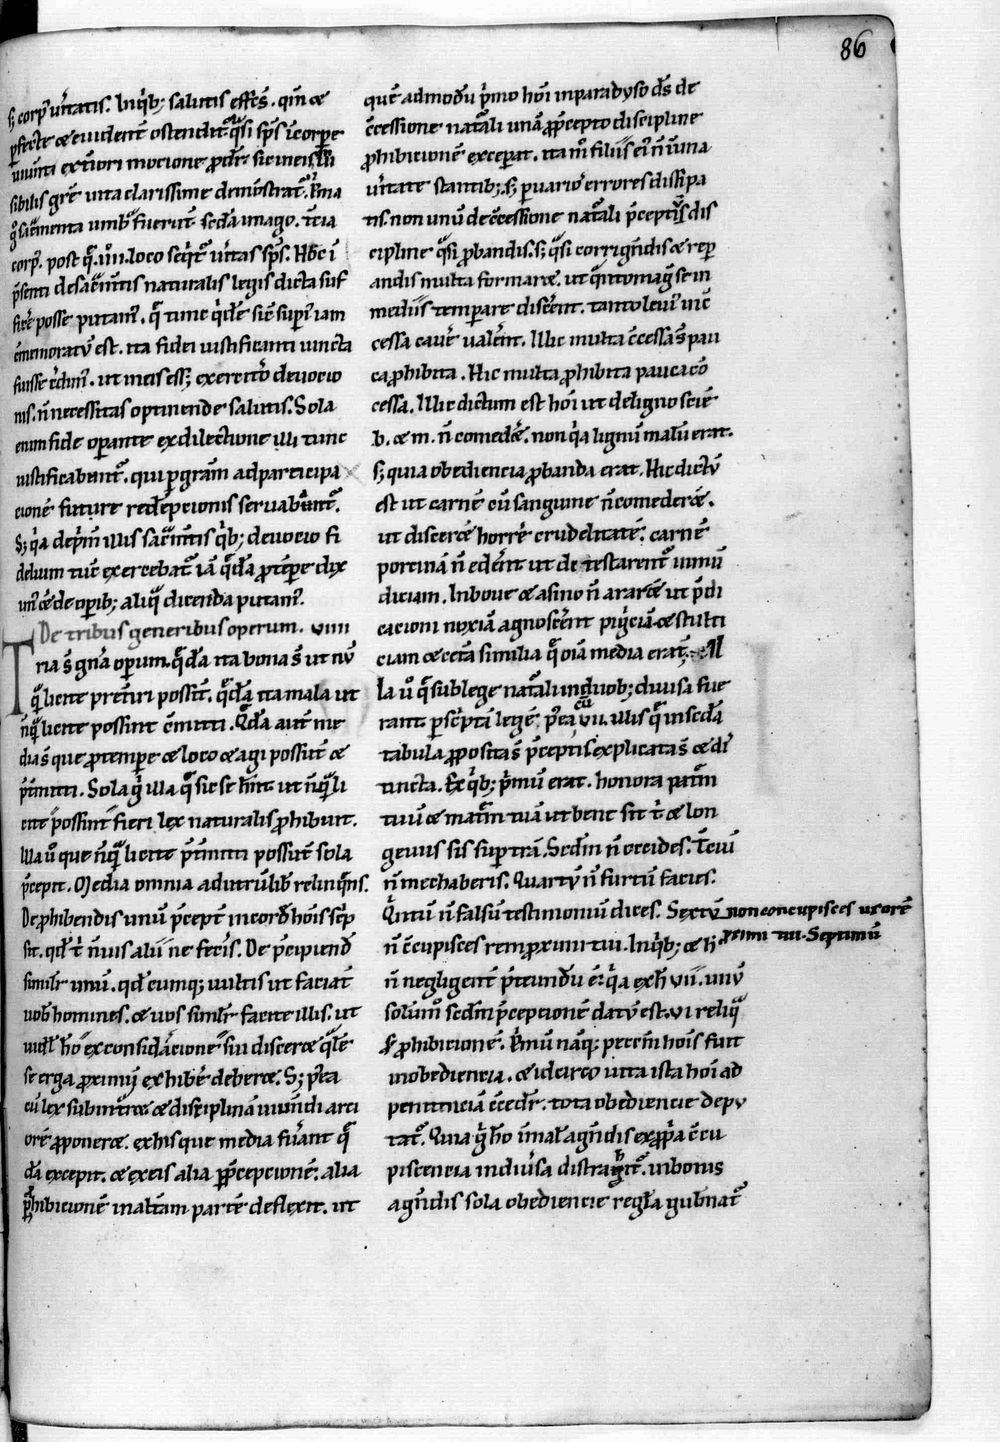 86
ꝫ corp᷒ uͥtatis. Inqͥbꝫ salutis effcͭ̄. qm̄ ⁊
pfecte ⁊ euident̄ ostendit᷒ qͣsi sps̄ ī corpe
uiuēti ext̄iori mocione ꝓdit᷒ sic in eis
sibilis gr̄e uita clarissime demōstrat᷒.
sac̄menta umbͣ fuerūt. sedͣa imago. tc̄ia
corp᷒. post qͣ. iiii. loco seqͥt᷒ uͥtas sps̄. Hec ī
p̄senti de sac̄mtis naturalis legis dicta suf
ficͤe posse putam᷒. qͣ tunc qͥdē sic̄ supͥ iam
ōmemoratū est. ita fidei iustificanti iuncta
fuisse cͤdim᷒. ut in eis essꝫ exercitͦ deuocio
nis. n̄ necessitas optinende salutis. Sola
enim fide opante ex dilectione illi tunc
iustificabunt᷒. qui p gr̄am ad participa
cionē future redēpcionis seruabunt᷒.
Sꝫ qͥa de pͥm̄ illis sac̄mtis qͥbꝫ deuocio fi
delium tūc exercebat᷒ iā qͣdā ꝓ tēpe dix
im᷒ ⁊̄ de opibꝫ aliqͣ dicenda putam᷒.
De tribus generibus operum. viiii
Tria s̄ gn̄a opum. qͣdā ita bona s̄ ut nū
qͣ licite pret̄iri possīt. qͣdā ita mala ut
nūqͣ licite possint ōmitti. Qͣdā aut̄ me
dia s̄ que ꝓ tempe ⁊ loco ⁊ agi possūt ⁊
p̄t̄mitti. Sola gͥ illa qͣ sic se hn̄t ut nūqͣ li
cite possint fieri lex naturalis ꝓhibuit.
Illa uͦ que nūqͣ licite p̄t̄mitti possūt sola
p̄cepit. Media omnia ad utrūlib; relinqͥns.
De ꝓhibendis unū p̄cept̄ in cord̄ hoīs scͥp
sit. qd̄ tͥ n̄ uis alii ne fecͥis. De p̄cipiend̄
simil̄r unū. qd̄ cumqꝫ uultis ut faciāt
uob̄ homines. ⁊ uos simil̄r facite illis. ut
uidl̄ hō ex consid̄acione sui disceret qͣle
se erga ꝓximū exhib̄e deberet. Sꝫ pͦtea
cū lex subintͣret ⁊ disciplinā uiuendi arci
orē ꝓponeret. ex hisque media fuͥant qͣ
dā excepit. ⁊ ex eis alia p p̄cepcionē. alia
p ꝓhibicionē in altam partē deflexit. ut
quē admodū pͥmo hoī in paradyso ds̄ de
ōcessione natͣali unā ꝓ p̄cepto discipline
ꝓhibicionē excepat. ita m̄ filiis ei᷒ n̄ ī una
uͥtate stantibꝫ. sꝫ p uarioͦ errores dissipa
tis. non unū de ōcessione natͣali p̄ceptū dis
cipline qͣsi ꝓbandis. sꝫ qͣsi corrigēdis ⁊ rep
andis multa formaret. ut qͣnto magͥ se in
mediis temperare discͤent. tanto leui᷒ in ō
cessa cauͤe ualͤent. Illic multa ōcessa s̄ pau
ca ꝓhibita. Hic multa ꝓhibita pauca cō
cessa. Illic dictum est hoī ut de ligno sciē
b. ⁊ m. n̄ comedͤet. non qͥa lignū malū erat.
sꝫ quia obediencia ꝓbanda erat. Hic dictū
est ut carnē cū sanguine n̄ comederet.
ut disceret horrͤe crudelitatē. carnē
porcinā n̄ edͤent ut detestarent᷒ inmū
diciam. In boue ⁊ asino n̄ ararēt ut p̄di
cacioni noxiā agnoscͤent pigͥciā ⁊ stulti
ciam ⁊ cet̄a similia qͣ oīa media erāt. Il
la uͦ qͣ sub lege natͣali in duobꝫ diuisa fue
rant. p scͥptā legē. pͦtea cū vii. illis qͣ in sedͣa
tabula ꝓposita s̄ p̄ceptis explicata s̄ ⁊ di
stincta. Ex qͥbꝫ pͥmū erat. honora patͤm
tuū ⁊ matͤm tuā ut bene sit tͥ ⁊ lon
geuus sis sup tr̄ā. Sedͫ n̄ occides. Tͨiū
n̄ mechaberis. Quartū n̄ furtū facies.
Qͥntū n̄ falsū testimoniū dices. Sextū non concupisces uxorē
ꝓximi tui. Septimū
n̄ ōcupisces rem ꝓximi tui. In qͥbꝫ ⁊ hͦ
n̄ negligent̄ p̄t̄eundū ē. qͥa ex h̄ vii. unū
solūmͦ sedͫ p̄cepcionē datū est. vi reliqͣ
s ꝓhibicionē. Pͥmū nāqꝫ peccm̄ hoīs fuit
inobediencia. ⁊ idcirco uita ista hoī ad
penitenciā ōcedit᷒. tota obediencie depu
tat᷒. Quia gͥ hō ī mal̄ agēdis ex ꝓpͥa ōcu
piscencia in diuͥsa distrahit᷒. in bonis
agēdis sola obediencie regl̄a gubͤnat᷒